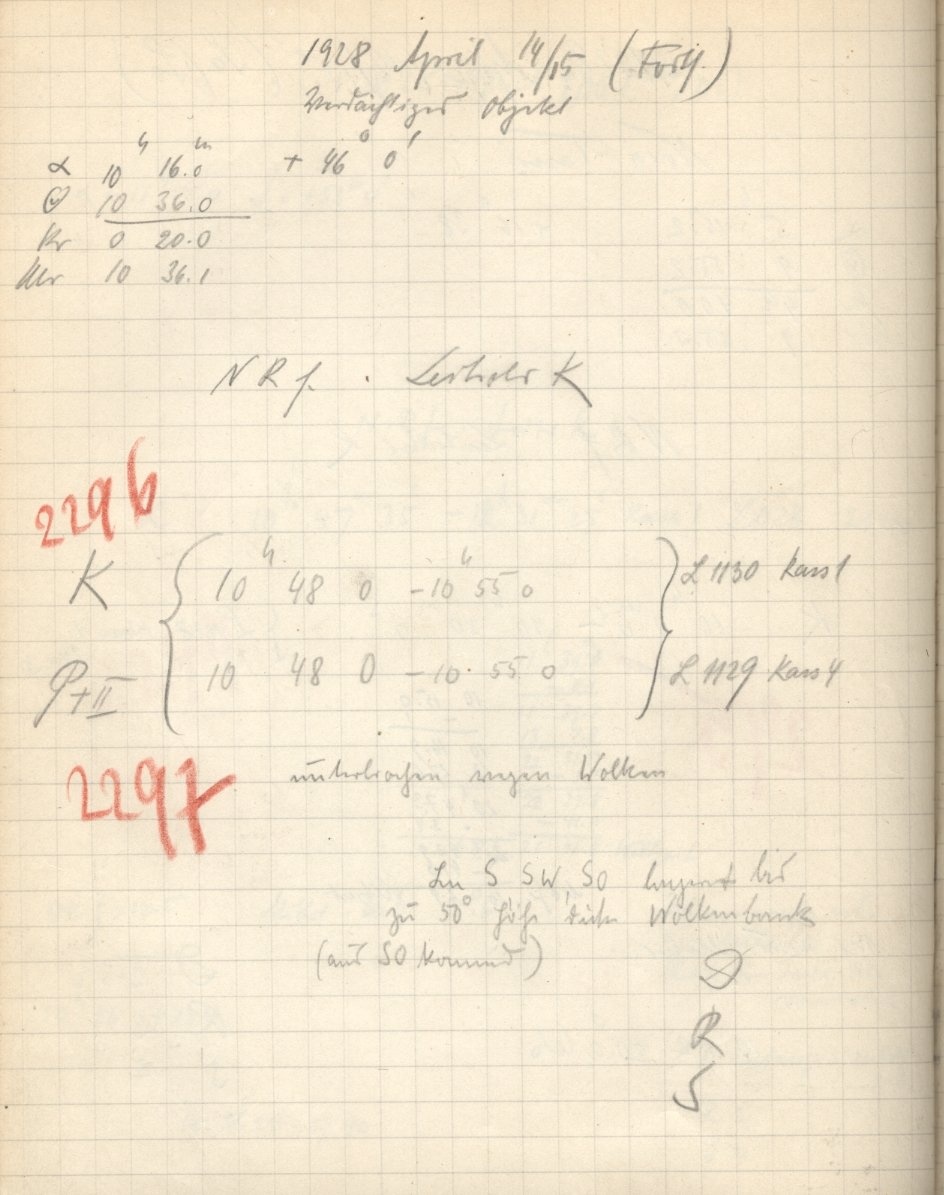 1928 April 14/15 (Forts.)
Verdächtiges Objekt
α 10h 16.0m + 46° 0'
Θ 10 36.0
Kr 0 20.0
Uhr 10 36.1
N R f. Leitrohr K
2296
K 10h 48 0 – 10h 55 0 L 1130 Kass 1
P+II 10 48 0 – 10. 55. 0 L 1129 Kass 4
2297
unterbrochen wegen Wolken
Im S SW, SO lagert bis
zu 50° Höhe dichte Wolkenbank
(aus SO kommend)
R
S